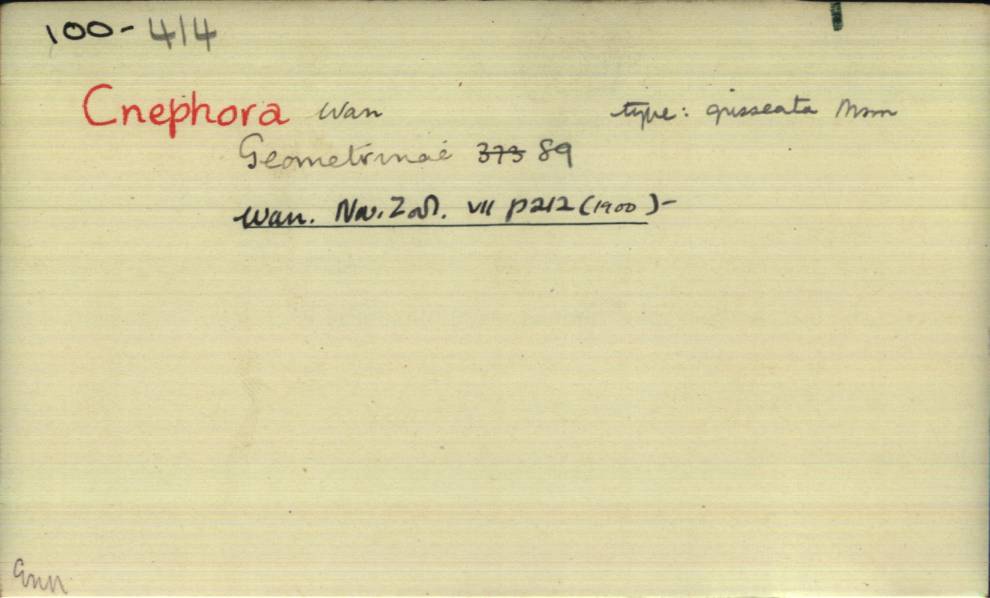 100-414
Cnephora Warr type: grisseata Btsm
Geometrinae 373 89
Warr. Nov. Zool. VII p 212 (1900) -